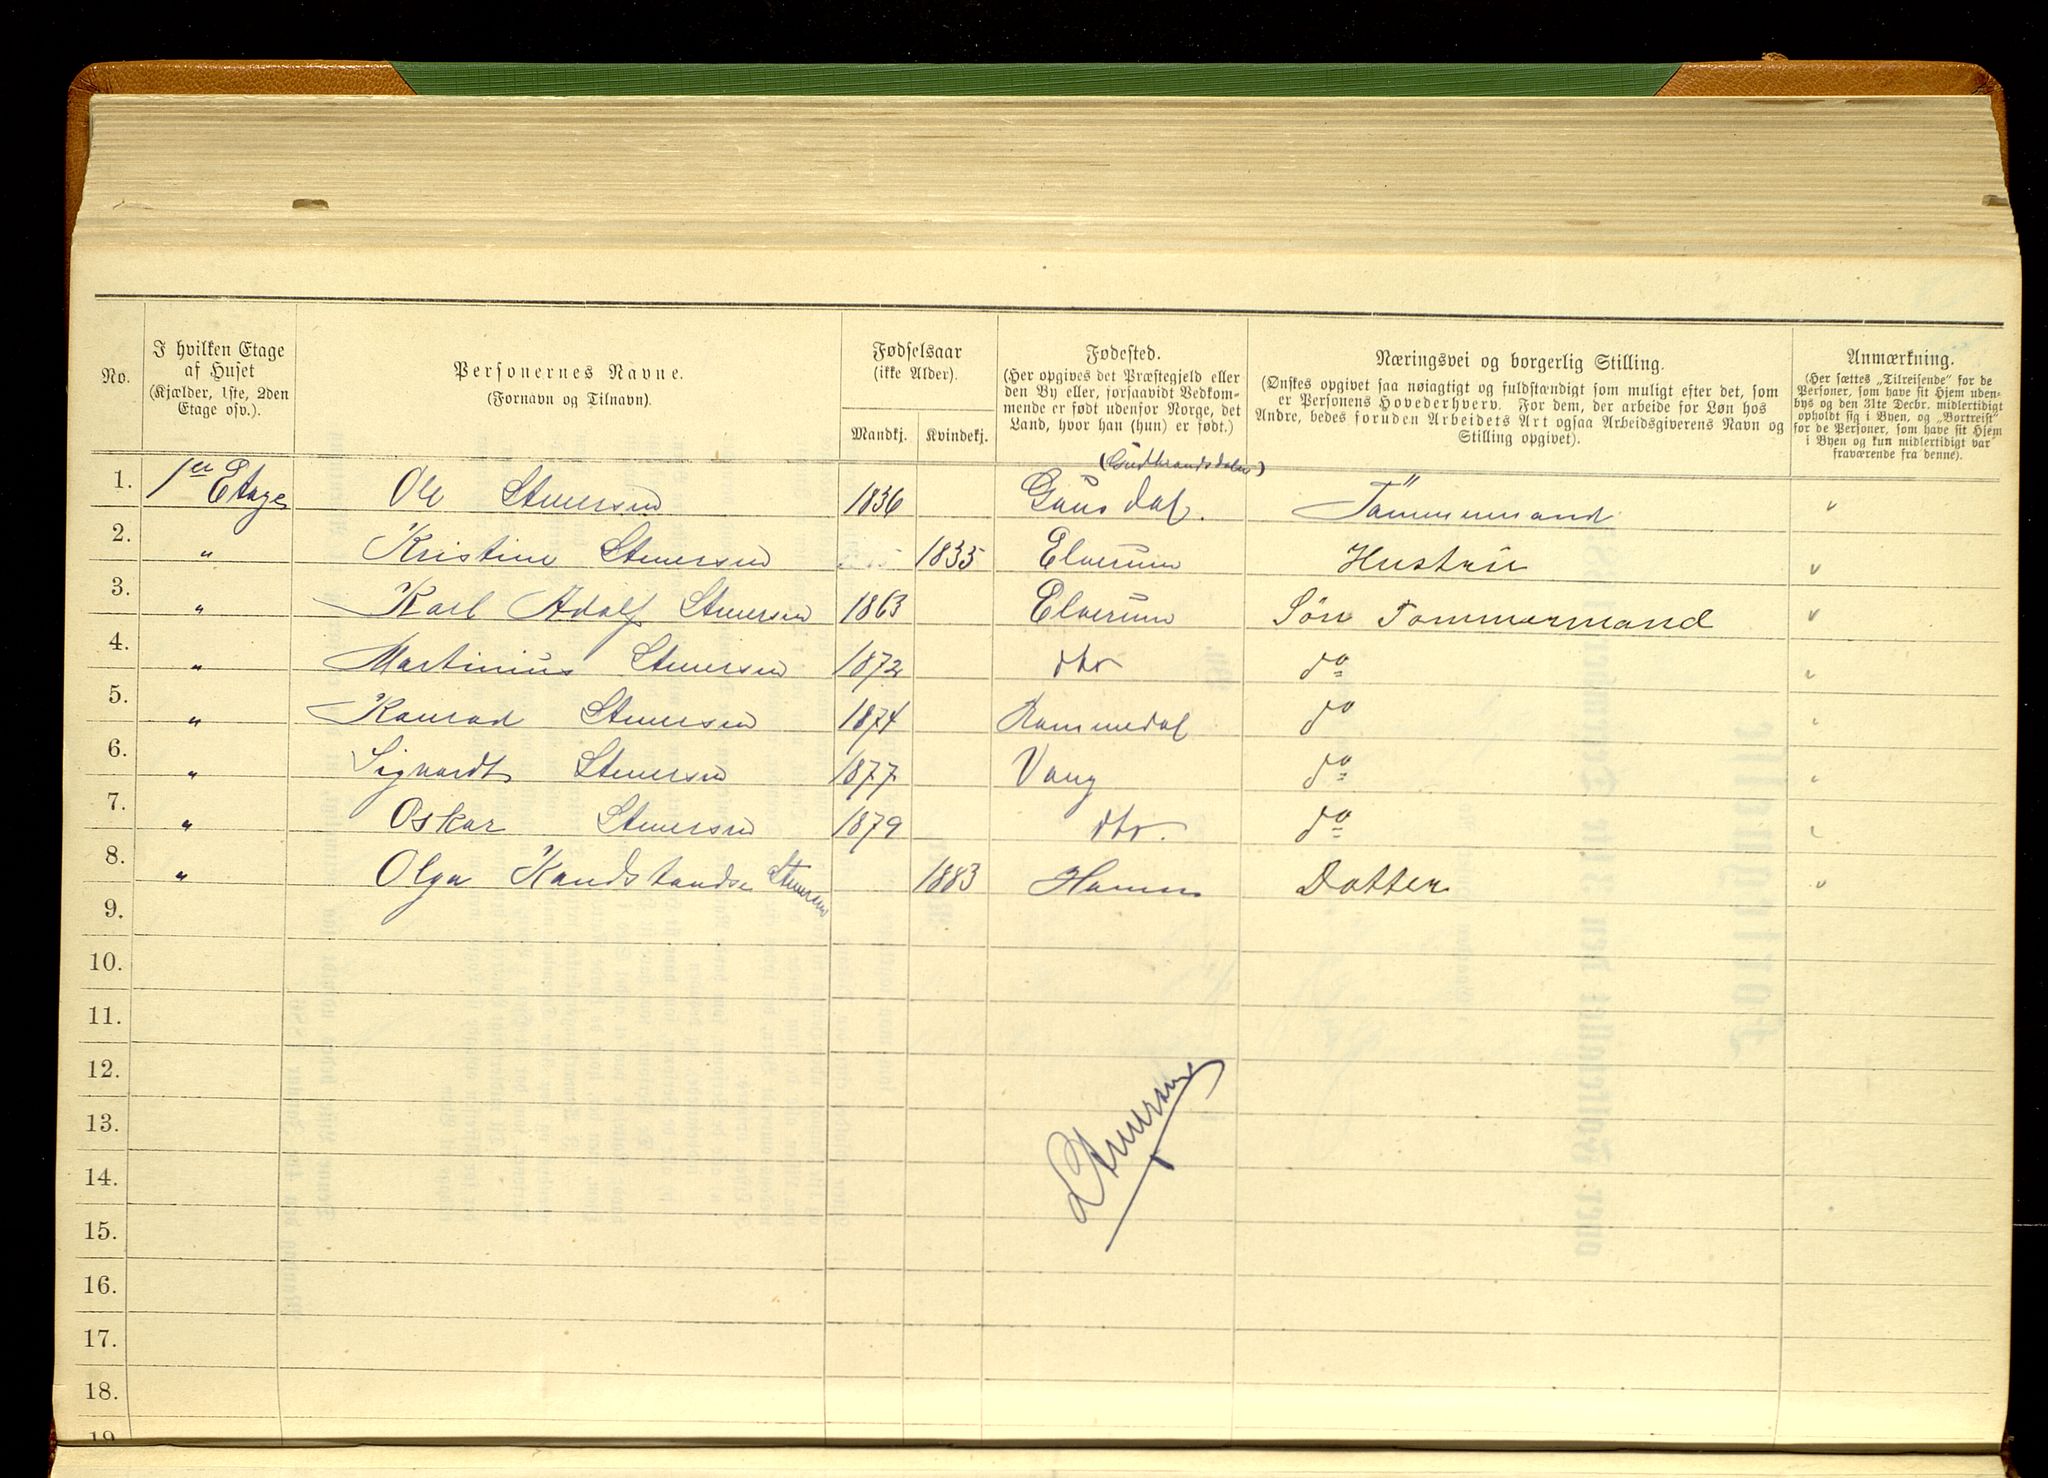 No.
I hvilken Etage af Huset
(Kjælder, 1ste, 2den Etage osv.).
Personernes Navne.
(Fornavn og Tilnavn).
Fødselsaar
(ikke Alder).
Mandkj.
Kvindekj.
Fødested.
(Her opgives det Præstegjeld eller
den By eller, forsaavidt Vedkom-
mende er født udenfor Norge, det
Land, hvor han (hun) er født.)
Næringsvei og borgerlig Stilling.
(Ønskes opgivet saa nøiagtigt og fuldstændigt som muligt efter det, som
er Personens Hovederhverv. For dem, der arbeide for Løn hos
Andre, bedes foruden Arbeidets Art ogsaa Arbeidsgiverens Navn og
Stilling opgivet).
Anmærkning.
(Her sættes „Tilreisende” for de
Personer, som have sit Hjem uden-
bys og den 31te Decbr. midlertidigt
opholdt sig i Byen, og „Bortreist”
for de Personer, som have sit Hjem
i Byen og kun midlertidigt var
fraværende fra denne).
(Gudbrandsdalen)
1. 1er Etage Ole Stenersen 1836 Gausdal. Tömmermand "
2. " Kristine Stenersen 1835 Elverum Hustru "
3. " Karl Adolf Stenersen 1863 Elverum Sön Tommermand "
4. " Martinius Stenersen 1872 dto do "
5. " Konrad Stenersen 1874 Rommedal do "
6. " Sigvardt Stenersen 1877 Vang do "
7. " Oskar Stenersen 1879 dto. do "
8. " Olga Stenersen 1883 Hamar Datter "
9.
10.
11.
12.
13.
14.
15.
16.
17.
18.
19
Stenersen